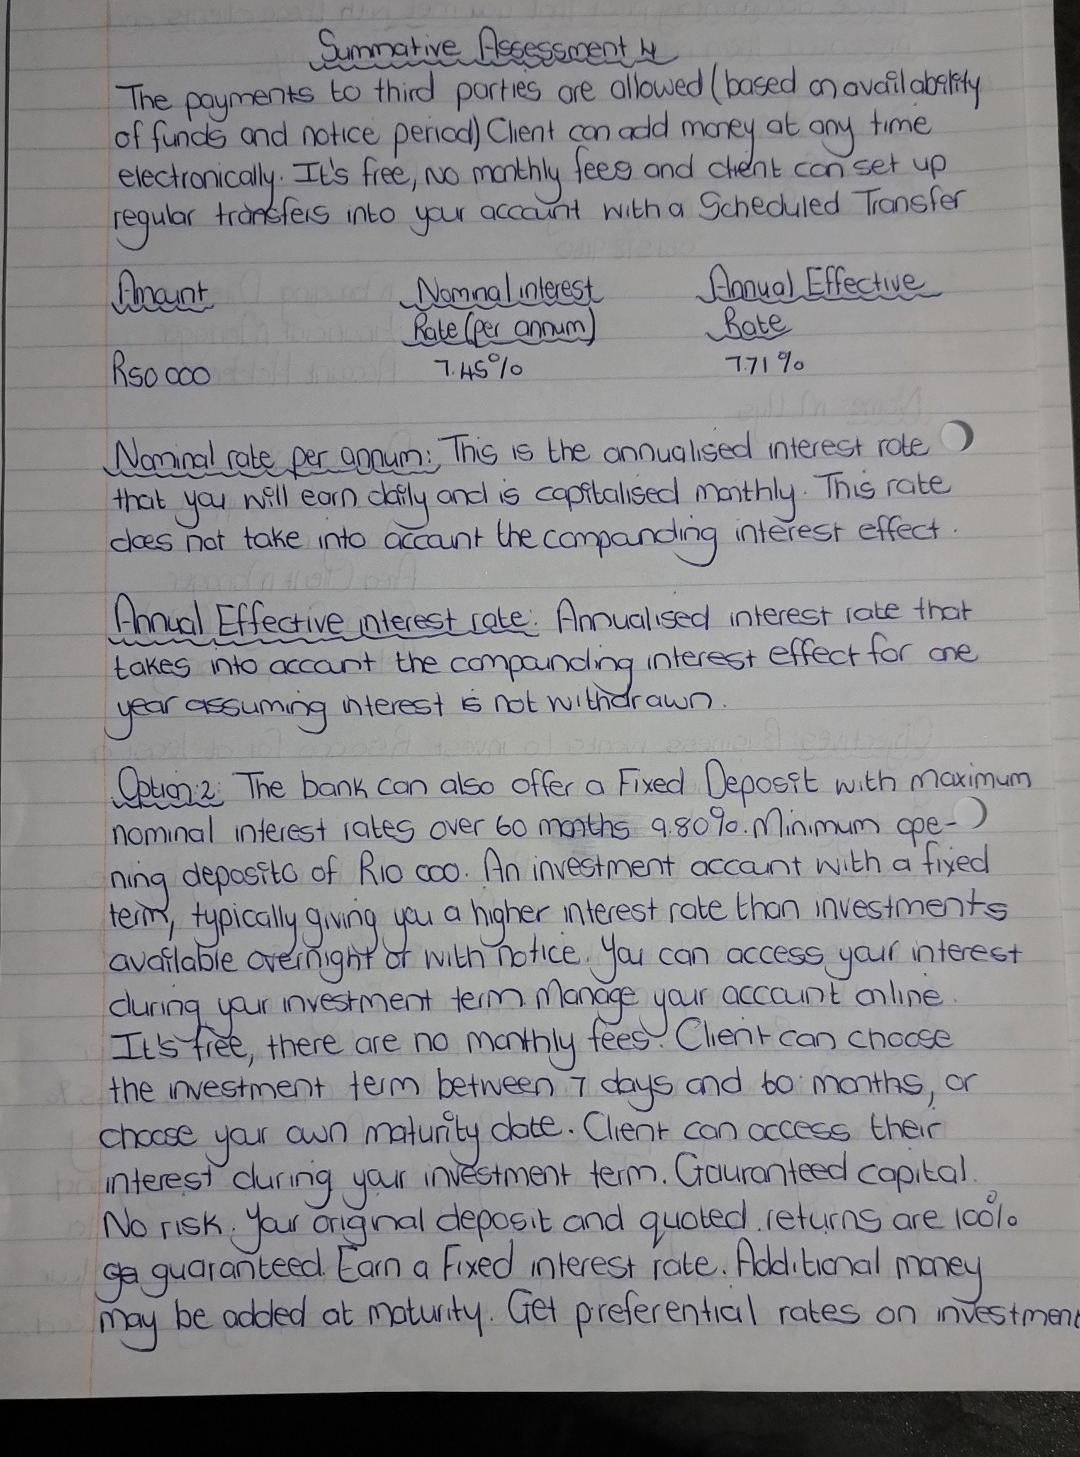 Summative Assessment 4
The payments to third parties are allowed (based on availability
of funds and notice period) Client can add money at any time
electronically. It's free, no monthly fees and client can set up
regular transfers into your account with a Scheduled Transfer
Amount Nominal interest Annual Effective
Rate (per annum) Rate
R50 000 7.45% 7.71%
Nominal rate per annum: This is the annualised interest rate
that you will earn daily and is capitalised monthly. This rate
does not take into account the compounding interest effect.
Annual Effective interest rate: Annualised interest rate that
takes into account the compounding interest effect for one
year assuming interest is not withdrawn.
Option:2: The bank can also offer a Fixed Deposit with maximum
nominal interest rates over 60 months 9.80%. Minimum ope-
ning deposito of R10 000. An investment account with a fixed
term, typically giving you a higher interest rate than investments
available overnight or with notice. You can access your interest
during your investment term. Manage your account online.
It's free, there are no monthly fees. Client can choose
the investment term between 7 days and 60 months, or
choose your own maturity date. Client can access their
interest during your investment term. Gauranteed capital.
No risk. Your original deposit and quoted returns are 100%
guaranteed. Earn a Fixed interest rate. Additional money
may be added at maturity. Get preferential rates on investment